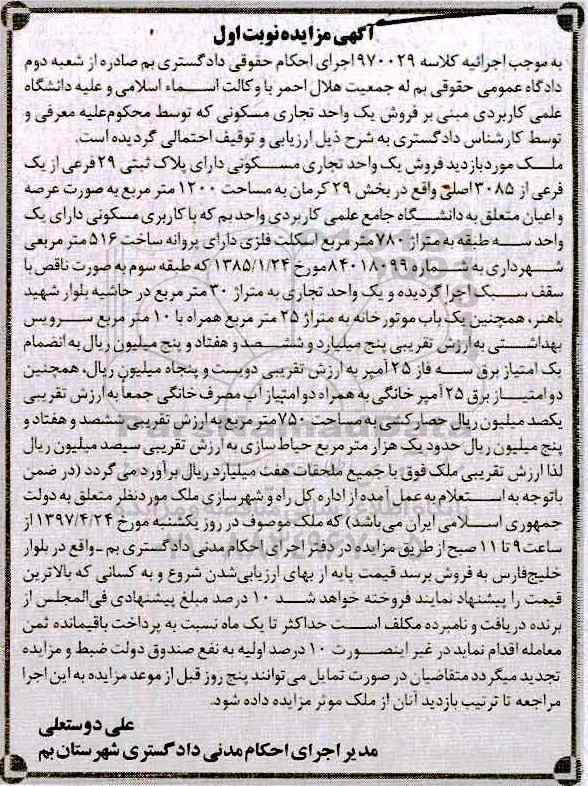 آگهی مزایده نوبت اول
به موجب اجرائیه کلاسه ۹۷۰۰۲۹ اجرای احکام حقوقی دادگستری بم صادره از شعبه دوم
دادگاه عمومی حقوقی بم له جمعیت هلال احمر با وکالت اسماء اسلامی و علیه دانشگاه
علمی کاربردی مبنی بر فروش یک واحد تجاری مسکونی که توسط محکوم‌علیه معرفی و
توسط کارشناس دادگستری به شرح ذیل ارزیابی و توقیف احتمالی گردیده است.
ملک مورد بازدید فروش یک واحد تجاری مسکونی دارای پلاک ثبتی ۲۹ فرعی از یک
فرعی از ۳۰۸۵ اصلی واقع در بخش ۲۹ کرمان به مساحت ۱۲۰۰ متر مربع به صورت عرصه
و اعیان متعلق به دانشگاه جامع علمی کاربردی واحد بم که با کاربری مسکونی دارای یک
واحد سه طبقه به متراژ ۷۸۰ متر مربع اسکلت فلزی دارای پروانه ساخت ۵۱۶ متر مربعی
شهرداری به شماره ۸۴۰۱۸۰۹۹ مورخ ۱۳۸۵/۱/۲۴ که طبقه سوم به صورت ناقص با
سقف سبک اجرا گردیده و یک واحد تجاری به متراژ ۳۰ متر مربع در حاشیه بلوار شهید
باهنر، همچنین یک باب موتورخانه به متراژ ۲۵ متر مربع همراه با ۱۰ متر مربع سرویس
بهداشتی به ارزش تقریبی پنج میلیارد و ششصد و هفتاد و پنج میلیون ریال به انضمام
یک امتیاز برق سه فاز ۲۵ آمپر به ارزش تقریبی دویست و پنجاه میلیون ریال، همچنین
دو امتیاز برق ۲۵ آمپر خانگی به همراه دو امتیاز آب مصرف خانگی جمعا به ارزش تقریبی
یکصد میلیون ریال حصارکشی به مساحت ۷۵۰ متر مربع به ارزش تقریبی ششصد و هفتاد و
پنج میلیون ریال حدود یک هزار متر مربع حیاط سازی به ارزش تقریبی سیصد میلیون ریال
لذا ارزش تقریبی ملک فوق با جمیع ملحقات هفت میلیارد ریال برآورد می گردد (در ضمن
باتوجه به استعلام به عمل آمده از اداره کل راه و شهرسازی ملک مورد نظر متعلق به دولت
جمهوری اسلامی ایران می باشد) که ملک موصوف در روز یکشنبه مورخ ۱۳۹۷/۴/۲۴ از
ساعت ۹ تا ۱۱ صبح از طریق مزایده در دفتر اجرای احکام مدنی دادگستری بم -واقع در بلوار
خلیج فارس به فروش برسد قیمت پایه از بهای ارزیابی شدن شروع و به کسانی که بالاترین
قیمت را پیشنهاد نمایند فروخته خواهد شد ۱۰ درصد مبلغ پیشنهادی فی المجلس از
برنده دریافت و نامبرده مکلف است حداکثر تا یک ماه نسبت به پرداخت باقیمانده ثمن
معامله اقدام نماید در غیر اینصورت ۱۰ درصد اولیه به نفع صندوق دولت ضبط و مزایده
تجدید میگردد متقاضیان در صورت تمایل می توانند پنج روز قبل از موعد مزایده به این اجرا
مراجعه تا ترتیب بازدید آنان از ملک موثر مزایده داده شود.
علی دوستعلی
مدیر اجرای احکام مدنی دادگستری شهرستان بم